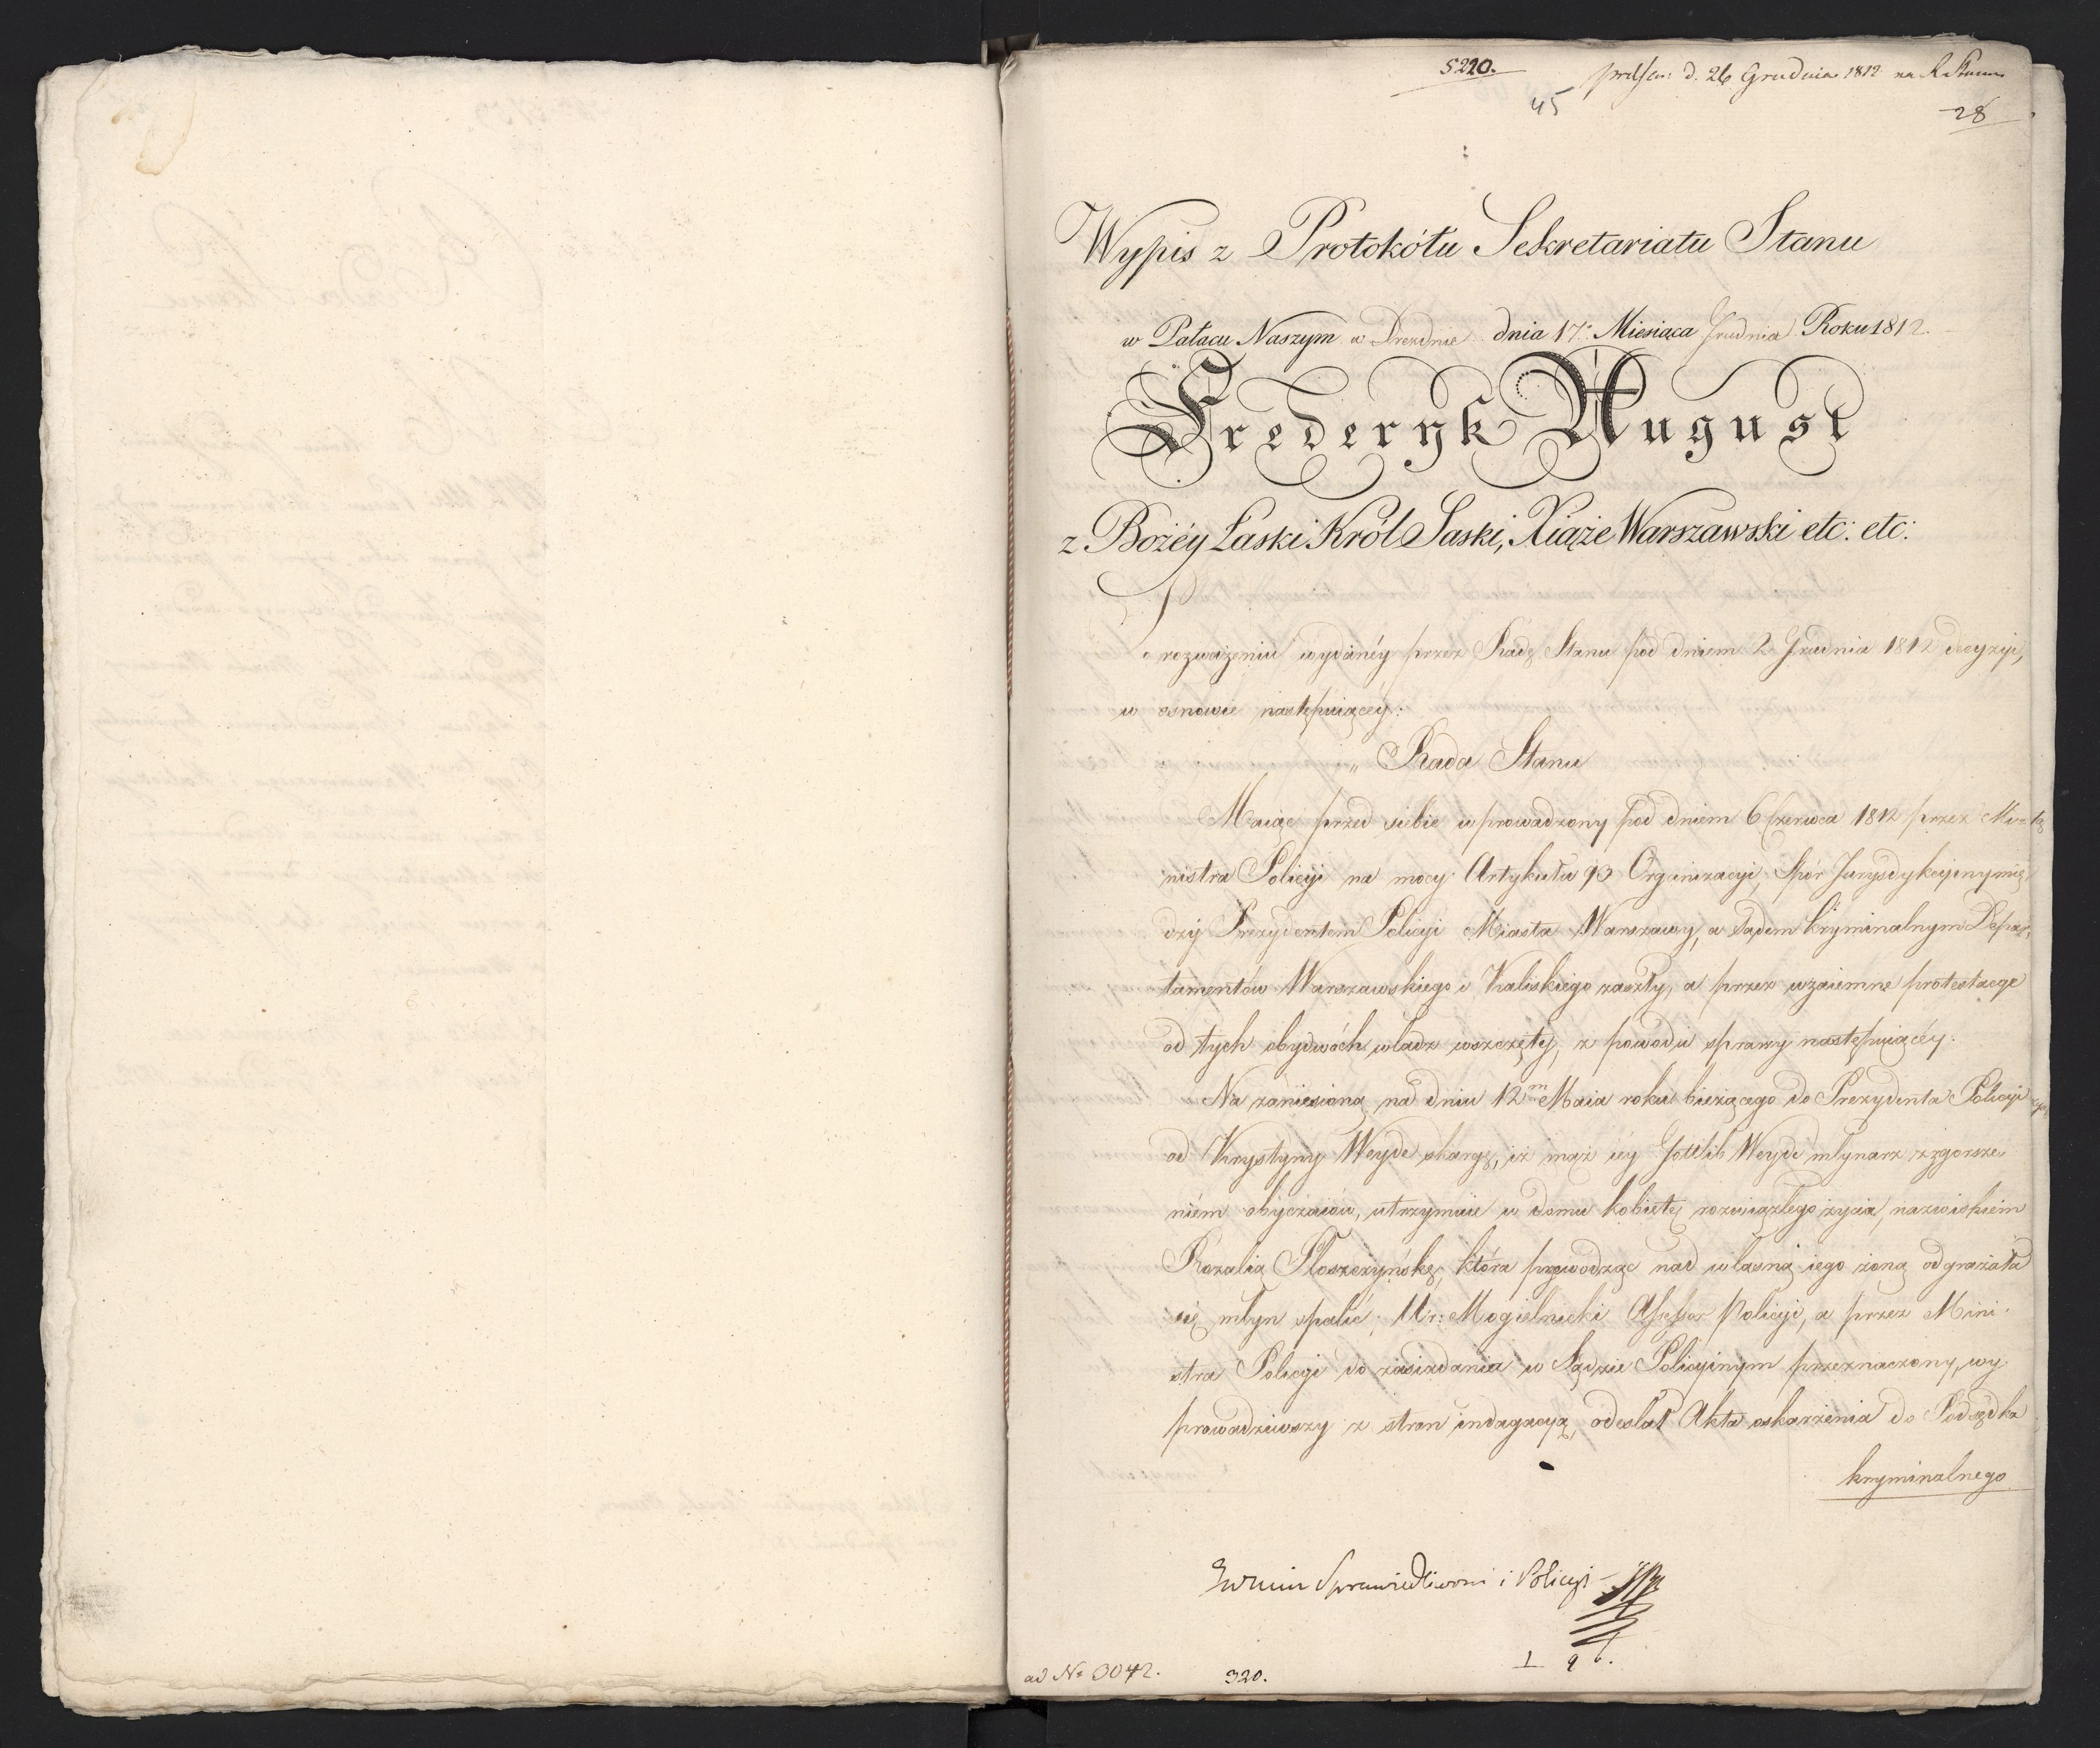 5220.
45
d. 26 Grudnia 1812 na R. Stanu
28
Wypis z Protokółu Sekretariatu Stanu
w Pałacu Naszym w Dreznie dnia 17. Miesiąca Grudnia Roku 1812.
Frederyk August
z Bożéy Łaski Król Saski, Xiąże Warszawski etc: etc:
Po rozważeniu wydanéy przez Radę Stanu pod dniem 2 Grudnia 1812 decyzyi,
w osnowie następuiącéy:
„ Rada Stanu
Maiąc przed siebie wprowadzony pod dniem 6 Czerwca 1812 przez Mi-
nistra Policyi na mocy Artykułu 93 Organizacyi, Spór Jurysdykcyiny mię-
dzy Prezydentem Policyi Miasta Warszawy, a Sądem kryminalnym Depar-
tamentów Warszawskiego i Kaliskiego zaszły, a przez wzaiemne protestacye
od tych obydwóch władz wszczęty, z powodu sprawy następuiącéy.
Na zaniesioną na dniu 12m Maia roku bieżącego do Prezydenta Policyi
od Krystyny Weyde skargę, iż mąż iéy Gottlib Weyde młynarz z zgorsze-
niém obyczaiów, utrzymuie w domu kobietę rozwiązłego życia, nazwiskiem
Rozalią Płoszczyńskę, która przewodząc nad własną iego żoną odgrażała
się młyn spalić; Ur: Mogielnicki Assessor Policyi, a przez Mini-
stra Policyi do zasiadania w Sądzie Policyinym przeznaczony, wy
prowadziwszy z stron indagacyą, odesłał Akta oskarżenia do Podsędka
kryminalnego
Sprawiedliwości i Policyi
1 9
ad No 3042.
320.